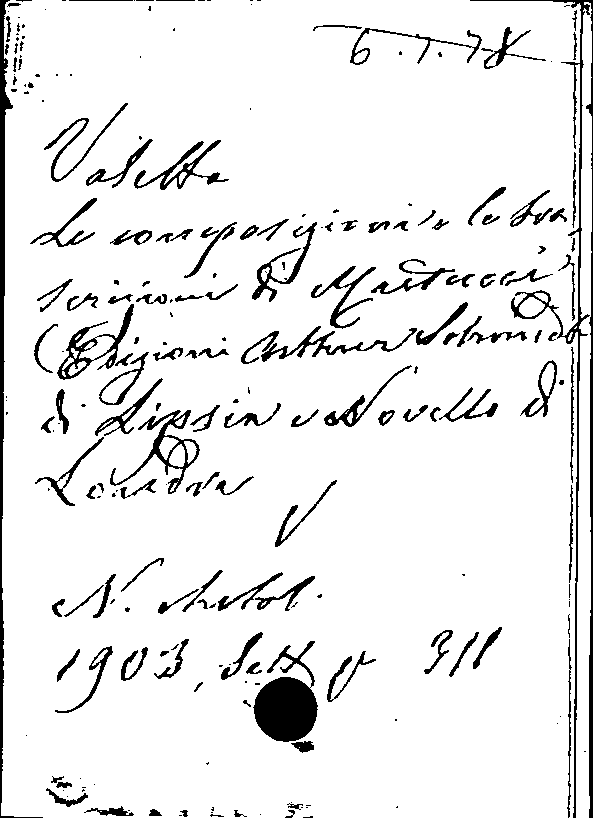 6.7.78
Valetta
Le composizioni e le tra-
scrizioni di Martucci
(Edizioni Arthur Schmidt
di Lipsia e Novello di
Londra
N. Antol.
1903, Sett p 311